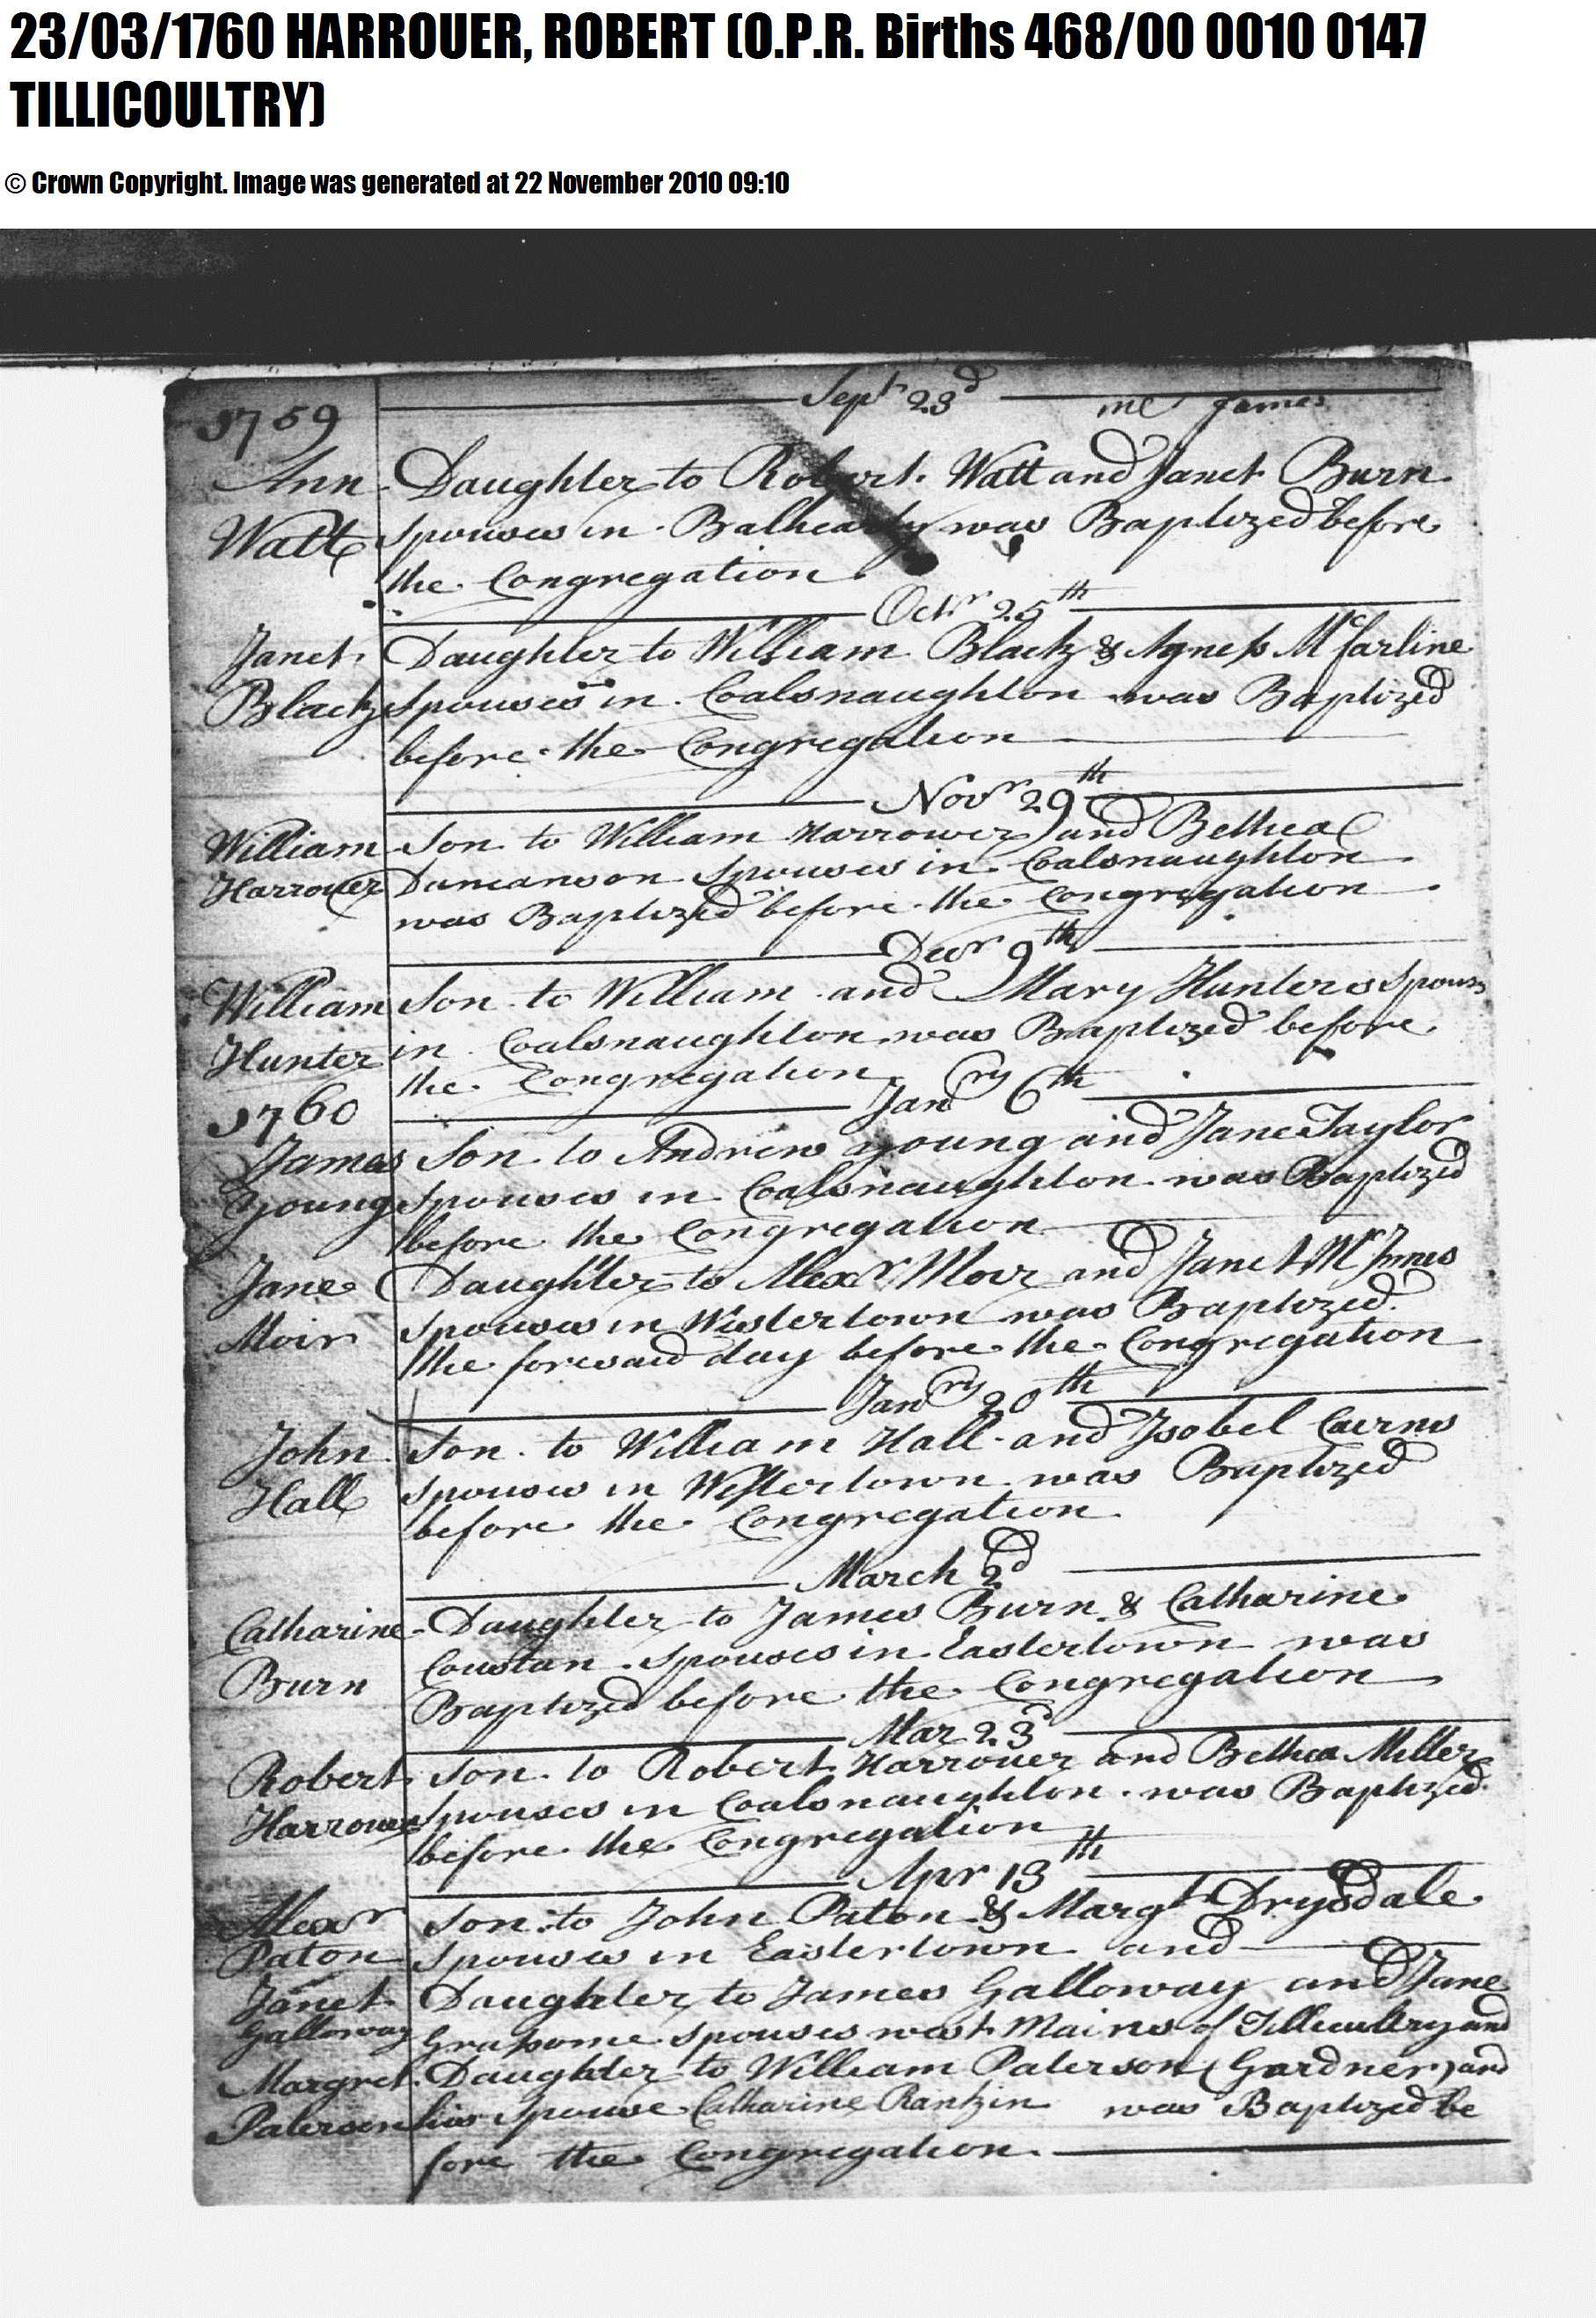 23/03/1760 HARROUER, ROBERT (O.P.R. Births 468/00 0010 0147
TILLICOULTRY)
© Crown Copyright. Image was generated at 22 November 2010 09:10
1759
Sept 23d
me James
Ann Daughter to Robert Watt and Janet Burn
Watt spouses in Balhearty was Baptized before
the Congregation
Octr 25th
Janet Daughter to William Black & Agness McFarline
Black spouses in Coalsnaughton was Baptized
before the Congregation
Novr 29th
William Son to William Harrower and Bethea
Harrouer Duncanson spouses in Coalsnaughton
was Baptized before the Congregation
Decr 9th
William Son to William and Mary Hunters spouses
Hunter in Coalsnaughton was Baptized before
the Congregation
1760
Janry 6th
James Son to Andrew Young and Jane Taylor
Young spouses in Coalsnaughton was Baptized
before the Congregation
Jane Daughter to Alexr Moir and Janet McInnes
Moir spouses in Westertown was Baptized
the foresaid day before the Congregation
Janry 20th
John Son to William Hall and Isobel Cairns
Hall spouses in Westertown was Baptized
before the Congregation
March 2d
Catharine Daughter to James Burn & Catharine
Burn Coustan spouses in Eastertown was
Baptized before the Congregation
Mar 23d
Robert Son to Robert Harrouer and Bethea Miller
Harrouer spouses in Coalsnaughton was Baptized
before the Congregation
Apr 13th
Alexr Son to John Paton & Margt Drysdale
Paton spouses in Eastertown and
Janet Daughter to James Galloway and Jane
Galloway spouses west Mains of Tillicultry and
Margret Daughter to William Paterson (Gardner) and
Paterson his spouse Catharine Rankin was Baptized be
fore the Congregation